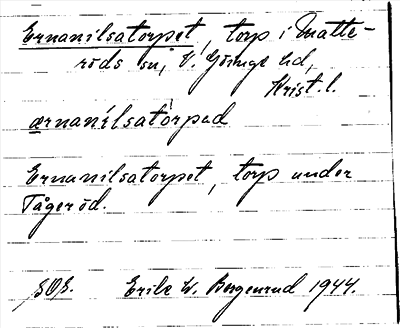 Ernanilsatorpet, torp i Matte-
röds sn, V. Göinge hd,
Krist. l.
ærnanílsatòrpad
Ernanilsatorpet, torp under
Tågeröd.
Erik W. Bergenrud 1944.